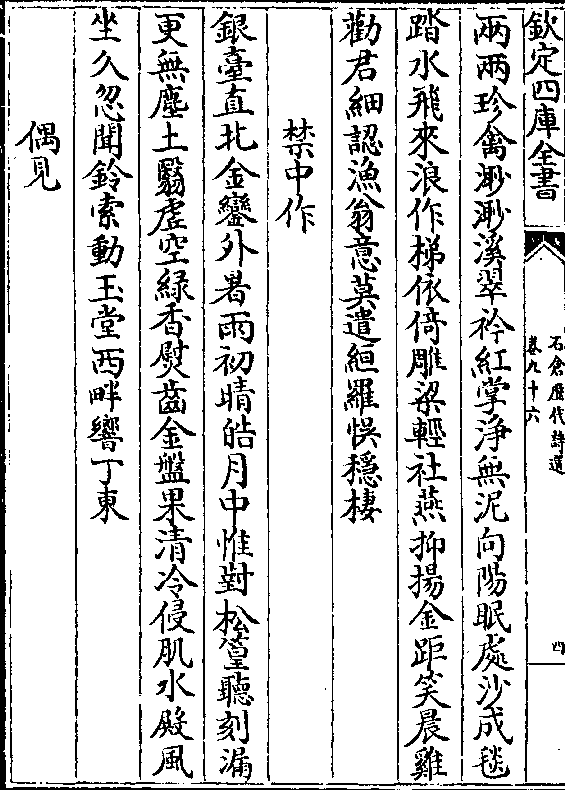 欽定四庫全書
石倉歷代詩選
卷九十六
四
兩兩珍禽渺渺溪翠衿紅掌淨無泥向陽眠處沙成毯
踏水飛來浪作梯依倚雕梁輕社燕抑揚金距笑晨雞
勸君細認漁翁意莫遣絙羅悞穩棲
禁中作
銀臺直北金鑾外暑雨初晴皓月中惟對松篁聽刻漏
更無塵土翳虛空綠香熨齒金盤果清冷侵肌水殿風
坐久忽聞鈴索動玉堂西畔響丁東
偶見